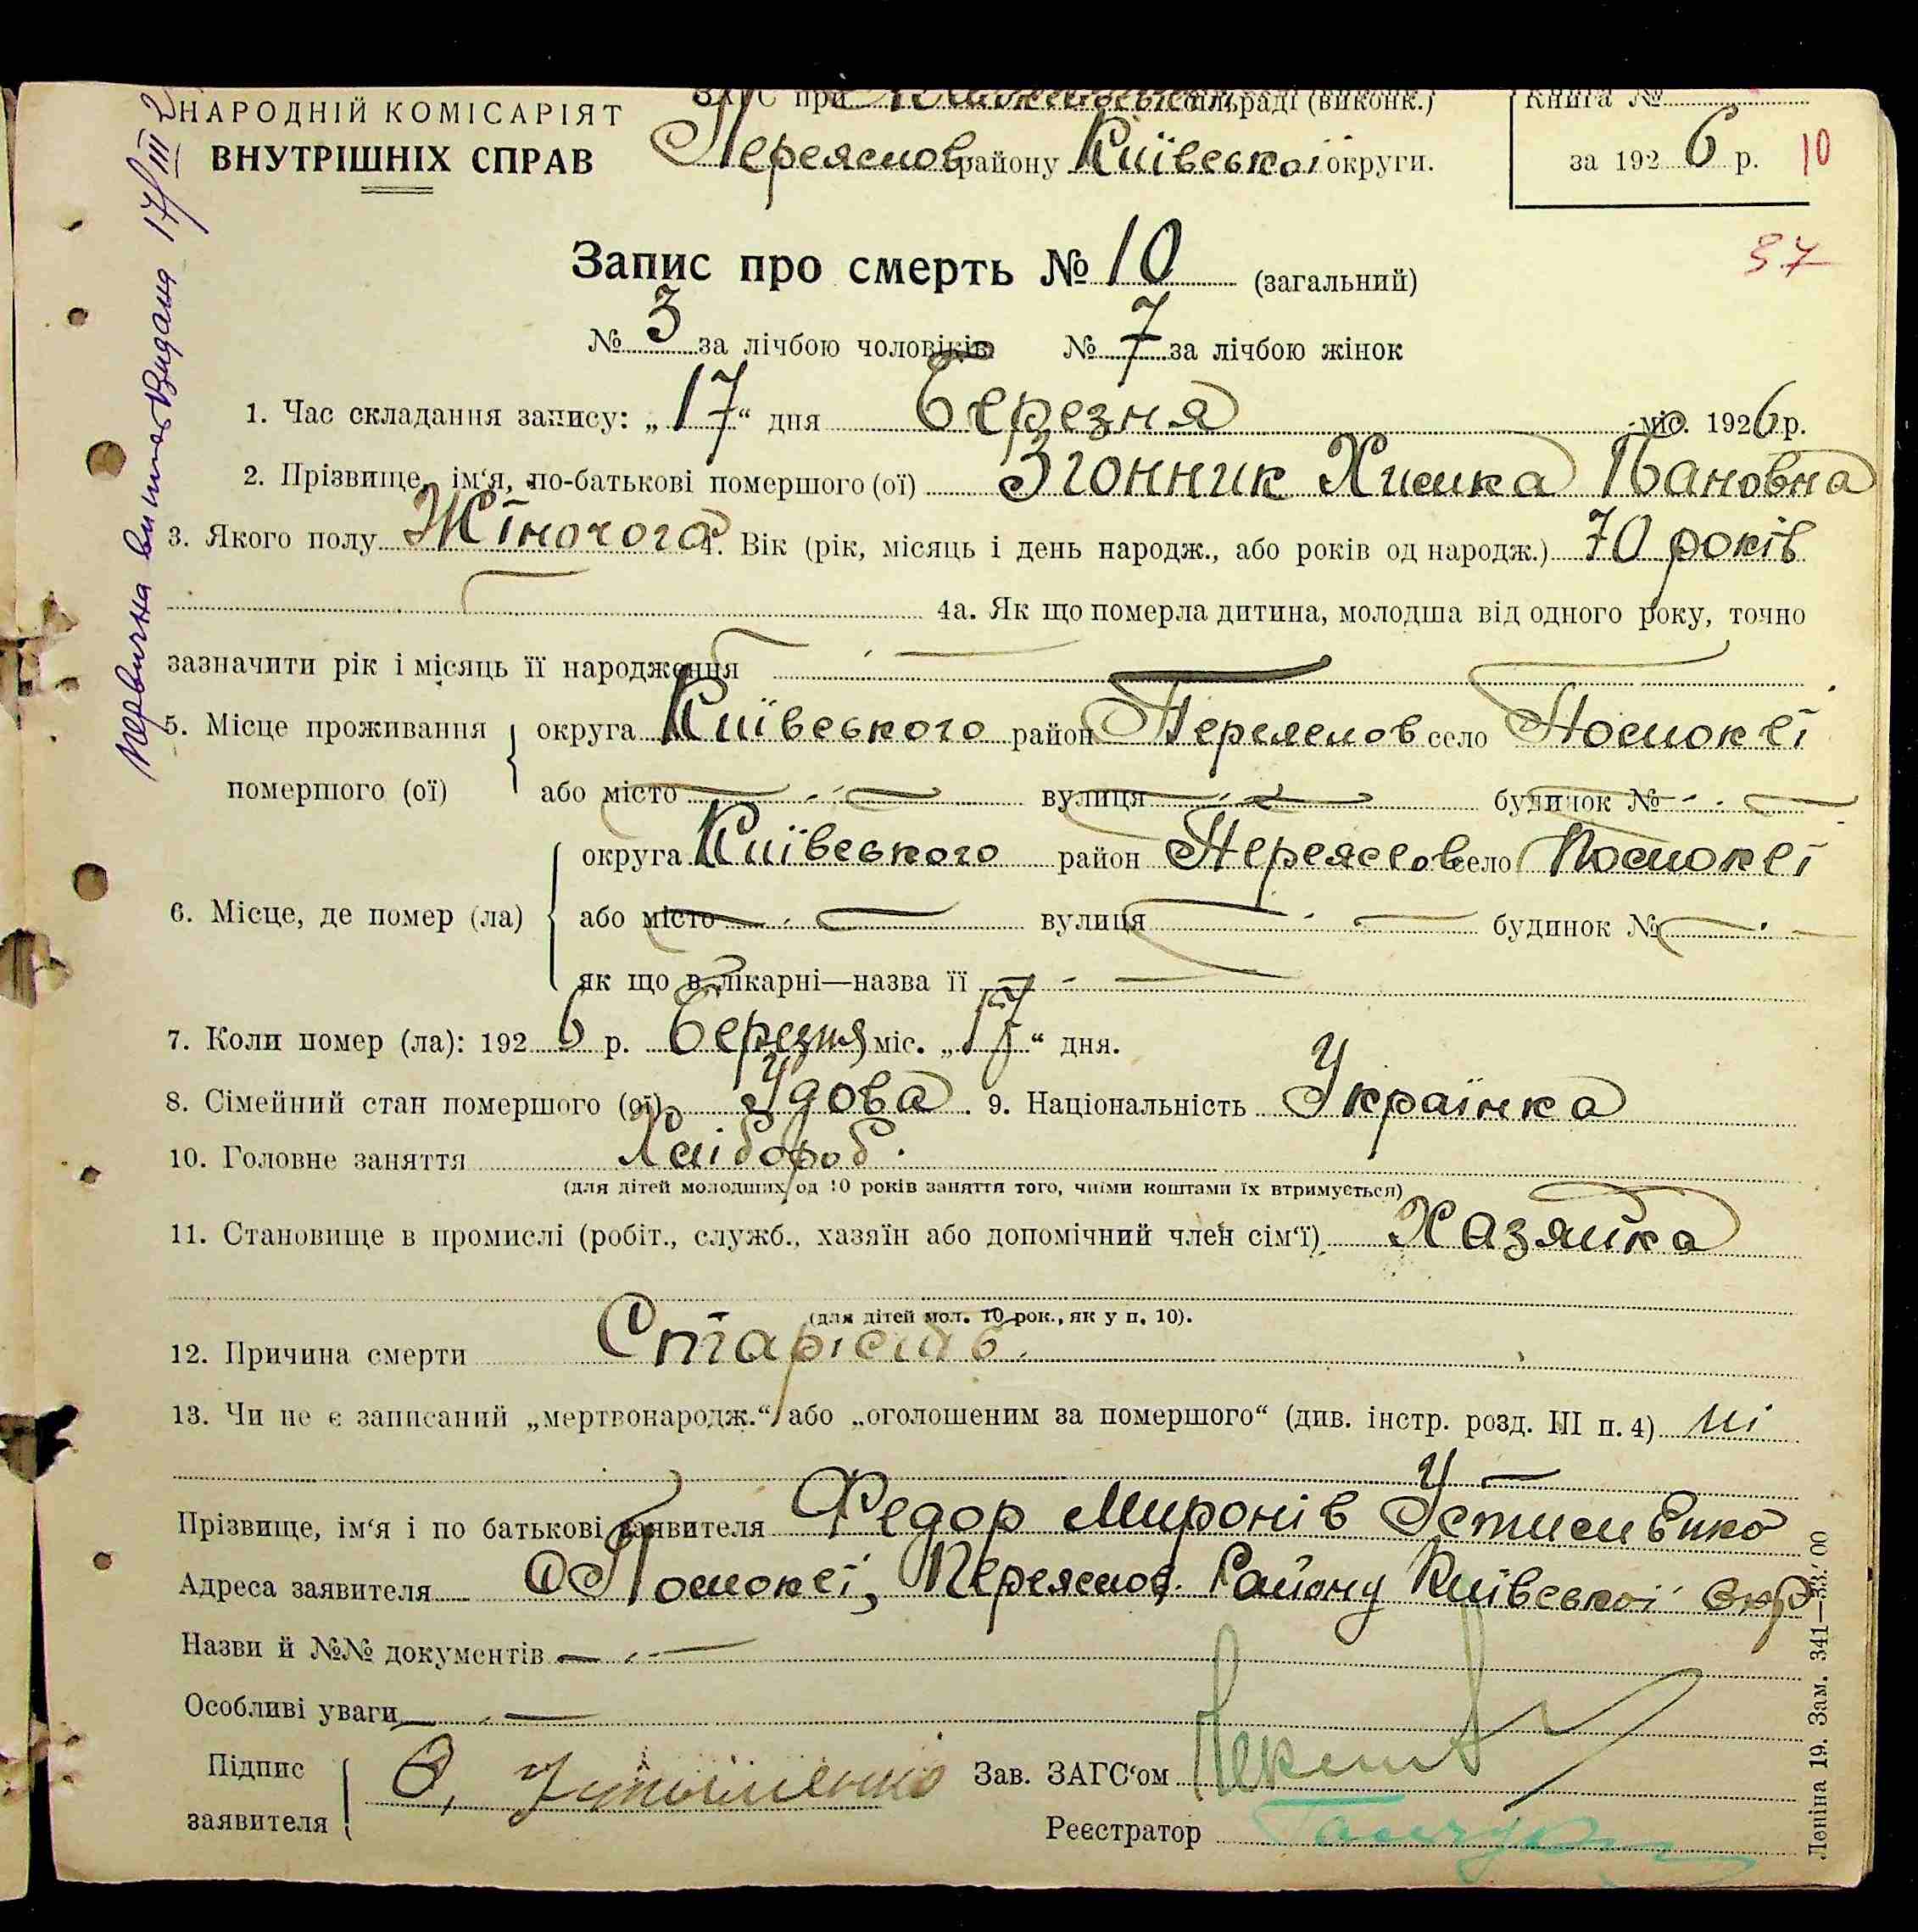 НАРОДНІЙ КОМІСАРІЯТ
ВНУТРІШНІХ СПРАВ
ЗАГС при сільраді (виконк.)
Переяслов району Київської округи.
Книга №
за 1926 р. 10
37
Запис про смерть № 10 (загальний)
№ 3 за лічбою чоловіків № 7 за лічбою жінок
1. Час складання запису: „17“ дня березня міс. 1926 р.
2. Прізвище, ім‘я, по-батькові помершого (ої) Згонник Химка Пановна
3. Якого полу Жіночого 4. Вік (рік, місяць і день народж., або років од народж.) 70 років
4а. Як що померла дитина, молодша від одного року, точно
зазначити рік і місяць її народження
5. Місце проживання помершого (ої) округа Київського район Переяслов село
або місто вулиця будинок №
6. Місце, де помер (ла) округа Київського район Переяслов село
або місто вулиця будинок №
як що в лікарні—назва її
7. Коли помер (ла): 1926 р. березня міс. „17“ дня.
8. Сімейний стан помершого (ої) Удова. 9. Національність Українка
10. Головне заняття Хлібороб.
(для дітей молодших од 10 років заняття того, чиїми коштами їх втримується)
11. Становище в промислі (робіт., служб., хазяїн або допомічний член сім‘ї) Хазяйка
(для дітей мол. 10 рок., як у п. 10).
12. Причина смерти Старість.
13. Чи не є записаний „мертвонародж.“ або „оголошеним за помершого“ (див. інстр. розд. III п. 4) ні
Прізвище, ім‘я і по батькові заявителя Федор Миронів Устименко
Адреса заявителя Переяслов. Району Київської окр
Назви й №№ документів
Особливі уваги
Підпис заявителя Зав. ЗАГС‘ом
Реєстратор
Леніна 19. Зам. 341—
Видана 17/III